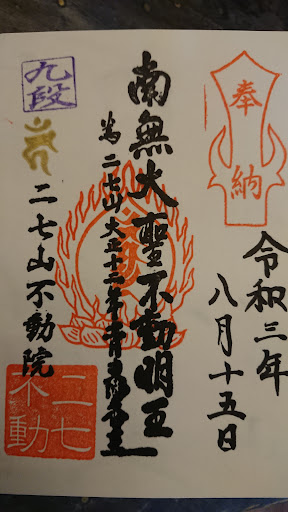 奉納
令和三年
八月十五日
南無大聖不動明王
二七山不動院
九段
二七
不動